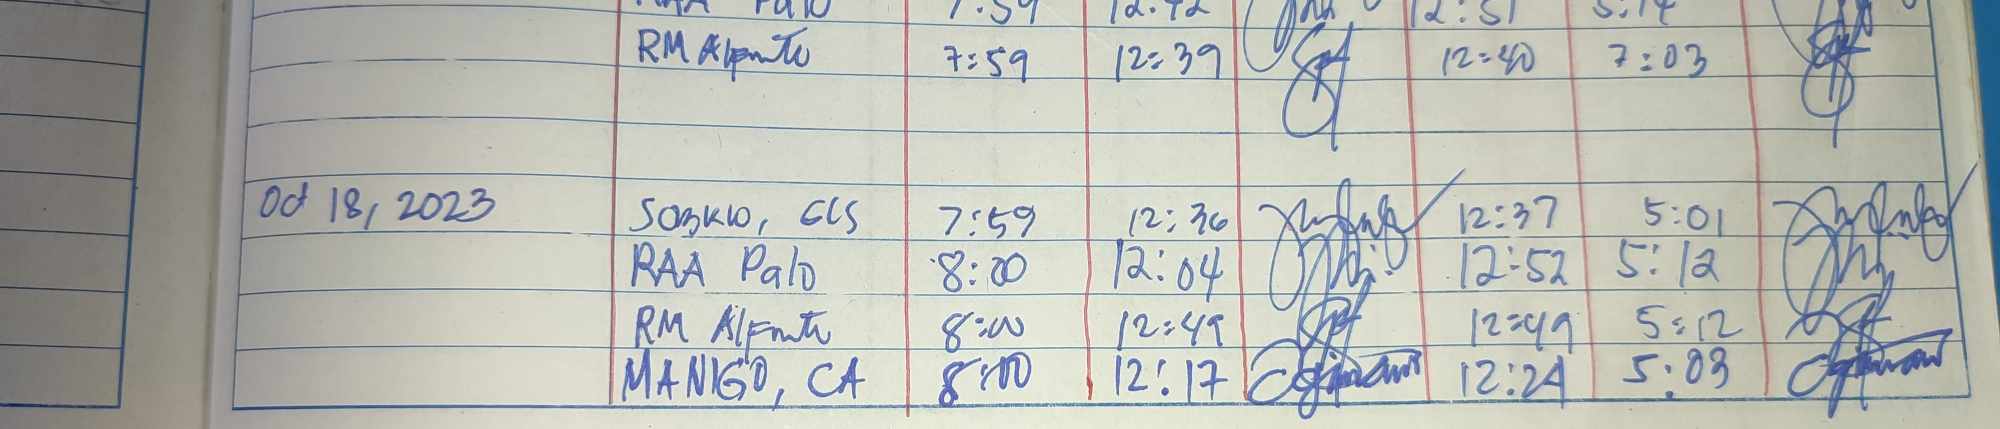 RAA Palo 7:59 12:42 12:51 5:14
RM Alfmte 7:59 12:39 12:40 7:03
Oct 18, 2023 SOBKIO, GLS 7:59 12:36 12:37 5:01
RAA Palo 8:00 12:04 12:52 5:12
RM Alfmte 8:00 12:49 12:49 5:12
MANIGO, CA 8:00 12:17 12:24 5:03